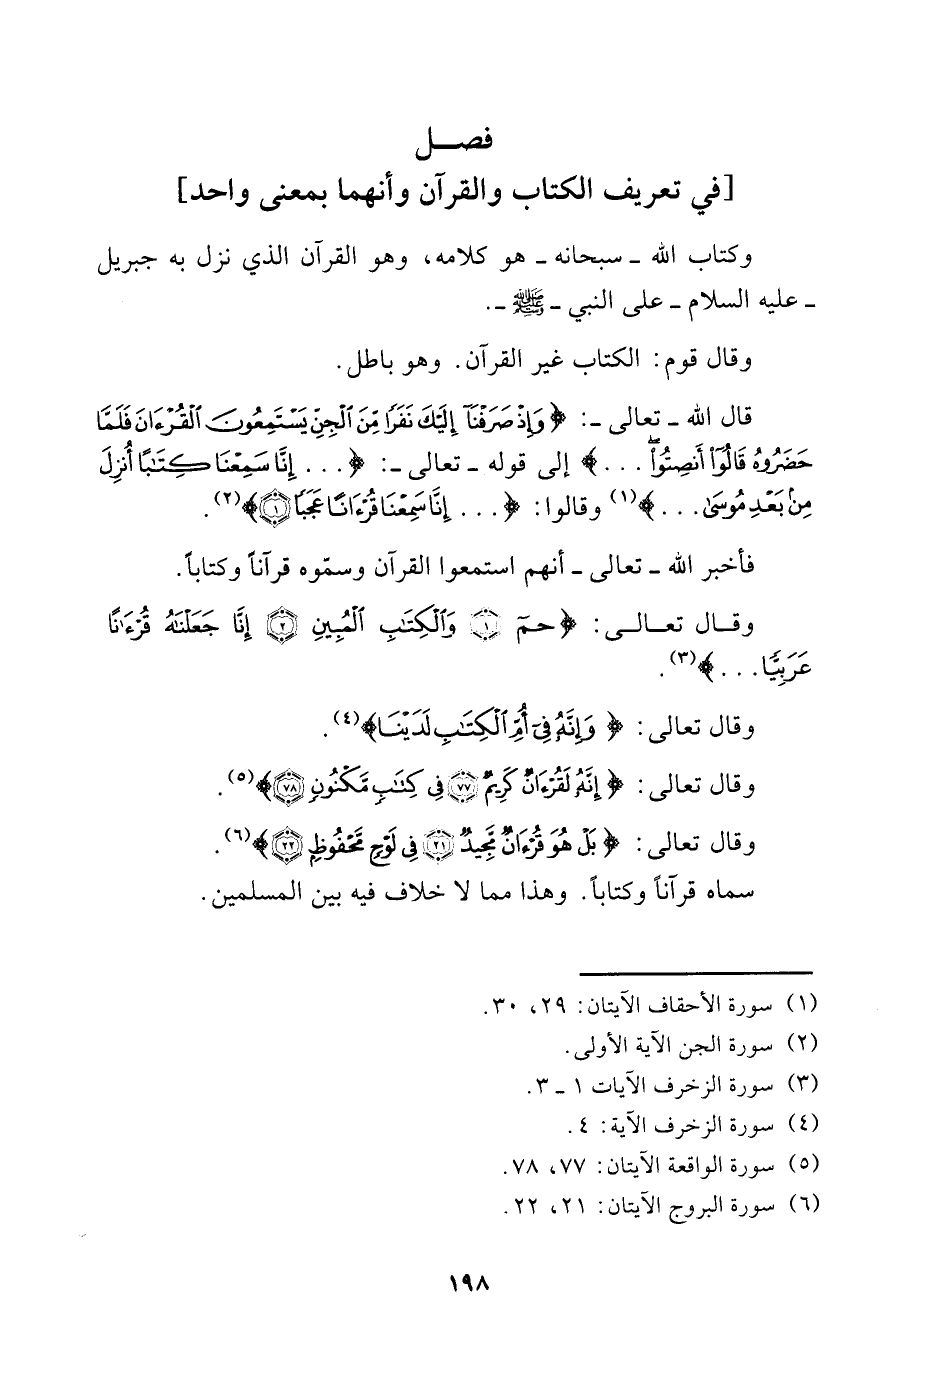 فصــل
[في تعريف الكتاب والقرآن وأنهما بمعنى واحد]
وكتاب الله ـ سبحانه ـ هو كلامه، وهو القرآن الذي نزل به جبريل
ـ عليه السلام ـ على النبي ـ ﷺ ـ.
وقال قوم: الكتاب غير القرآن. وهو باطل.
قال الله ـ تعالى ـ: ﴿وَإِذْ صَرَفْنَآ إِلَيْكَ نَفَرًا مِّنَ ٱلْجِنِّ يَسْتَمِعُونَ ٱلْقُرْءَانَ فَلَمَّا
حَضَرُوهُ قَالُوٓا۟ أَنصِتُوا۟ۖ . . .﴾ إلى قوله ـ تعالى ـ: ﴿. . . إِنَّا سَمِعْنَا كِتَٰبًا أُنزِلَ
مِنۢ بَعْدِ مُوسَىٰ. . .﴾(١) وقالوا: ﴿. . . إِنَّا سَمِعْنَا قُرْءَانًا عَجَبًا ١﴾(٢).
فأخبر الله ـ تعالى ـ أنهم استمعوا القرآن وسمّوه قرآناً وكتاباً.
وقــال تعــالــى: ﴿حمٓ ١ وَٱلْكِتَٰبِ ٱلْمُبِينِ ٢ إِنَّا جَعَلْنَٰهُ قُرْءَٰنًا
عَرَبِيًّا. . .﴾(٣).
وقال تعالى: ﴿وَإِنَّهُۥ فِىٓ أُمِّ ٱلْكِتَٰبِ لَدَيْنَا﴾(٤).
وقال تعالى: ﴿إِنَّهُۥ لَقُرْءَانٌ كَرِيمٌ ٧٧ فِى كِتَٰبٍ مَّكْنُونٍ ٧٨﴾(٥).
وقال تعالى: ﴿بَلْ هُوَ قُرْءَانٌ مَّجِيدٌ ٢١ فِى لَوْحٍ مَّحْفُوظٍ ٢٢﴾(٦).
سماه قرآناً وكتاباً. وهذا مما لا خلاف فيه بين المسلمين.
(١) سورة الأحقاف الآيتان: ٢٩، ٣٠.
(٢) سورة الجن الآية الأولى.
(٣) سورة الزخرف الآيات ١ ـ ٣.
(٤) سورة الزخرف الآية: ٤.
(٥) سورة الواقعة الآيتان: ٧٧، ٧٨.
(٦) سورة البروج الآيتان: ٢١، ٢٢.
١٩٨